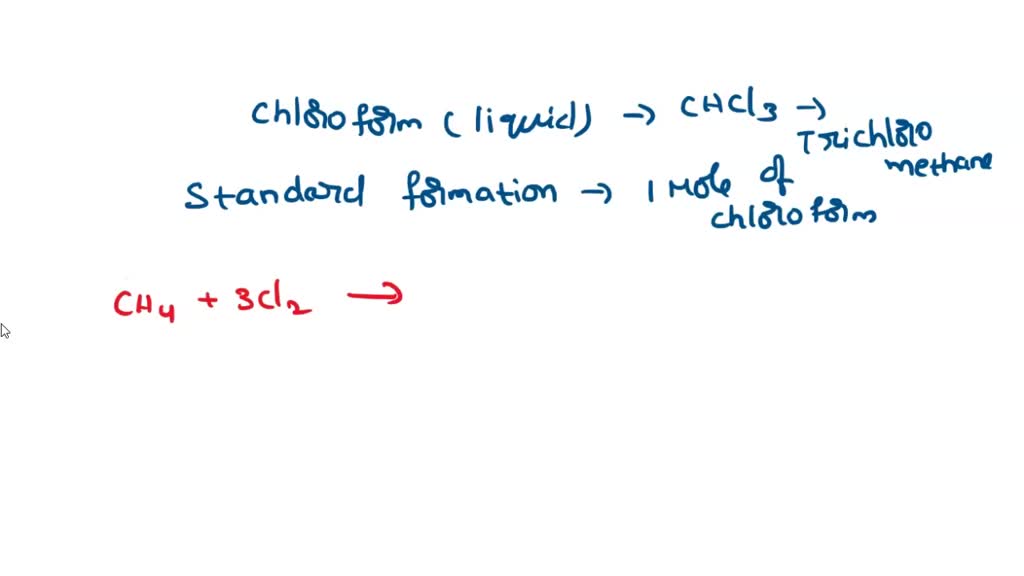 Chloroform (liquid) → CHCl3 → Trichloro methane
Standard formation → 1 Mole of chloroform
CH4 + 3Cl2 →